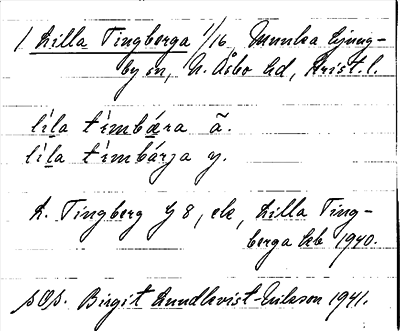 1 Lilla Tingberga 1/16, Munka Ljung-
by sn, N. Åsbo hd, Krist. l.
líla tímbæra ã.
líla tímbárja y.
L. Tingberg Y 8, ek, Lilla Ting-
berga Lb 1940.
Birgit Lundkvist-Nilsson 1941.